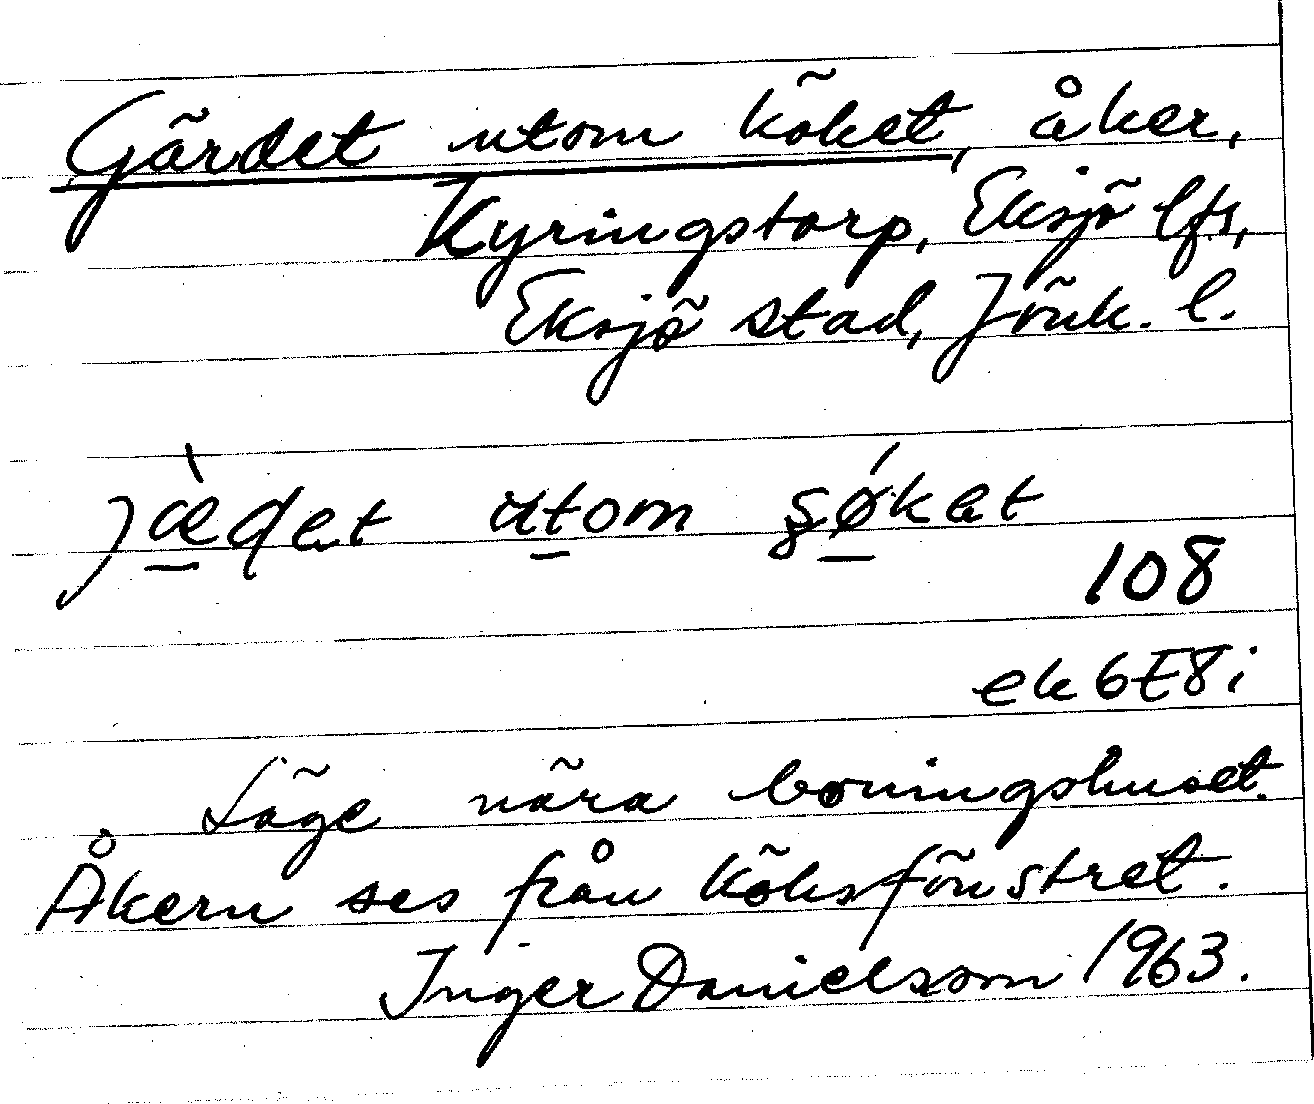 Gärdet utom köket, åker,
Kyringstorp, Eksjö lfs,
Eksjö stad, Jönk. l.
jæ̀det utom şǿket
108
ek 6E8i
Läge nära boningshuset.
Åkern ses från köksfönstret.
Inger Danielsson 1963.